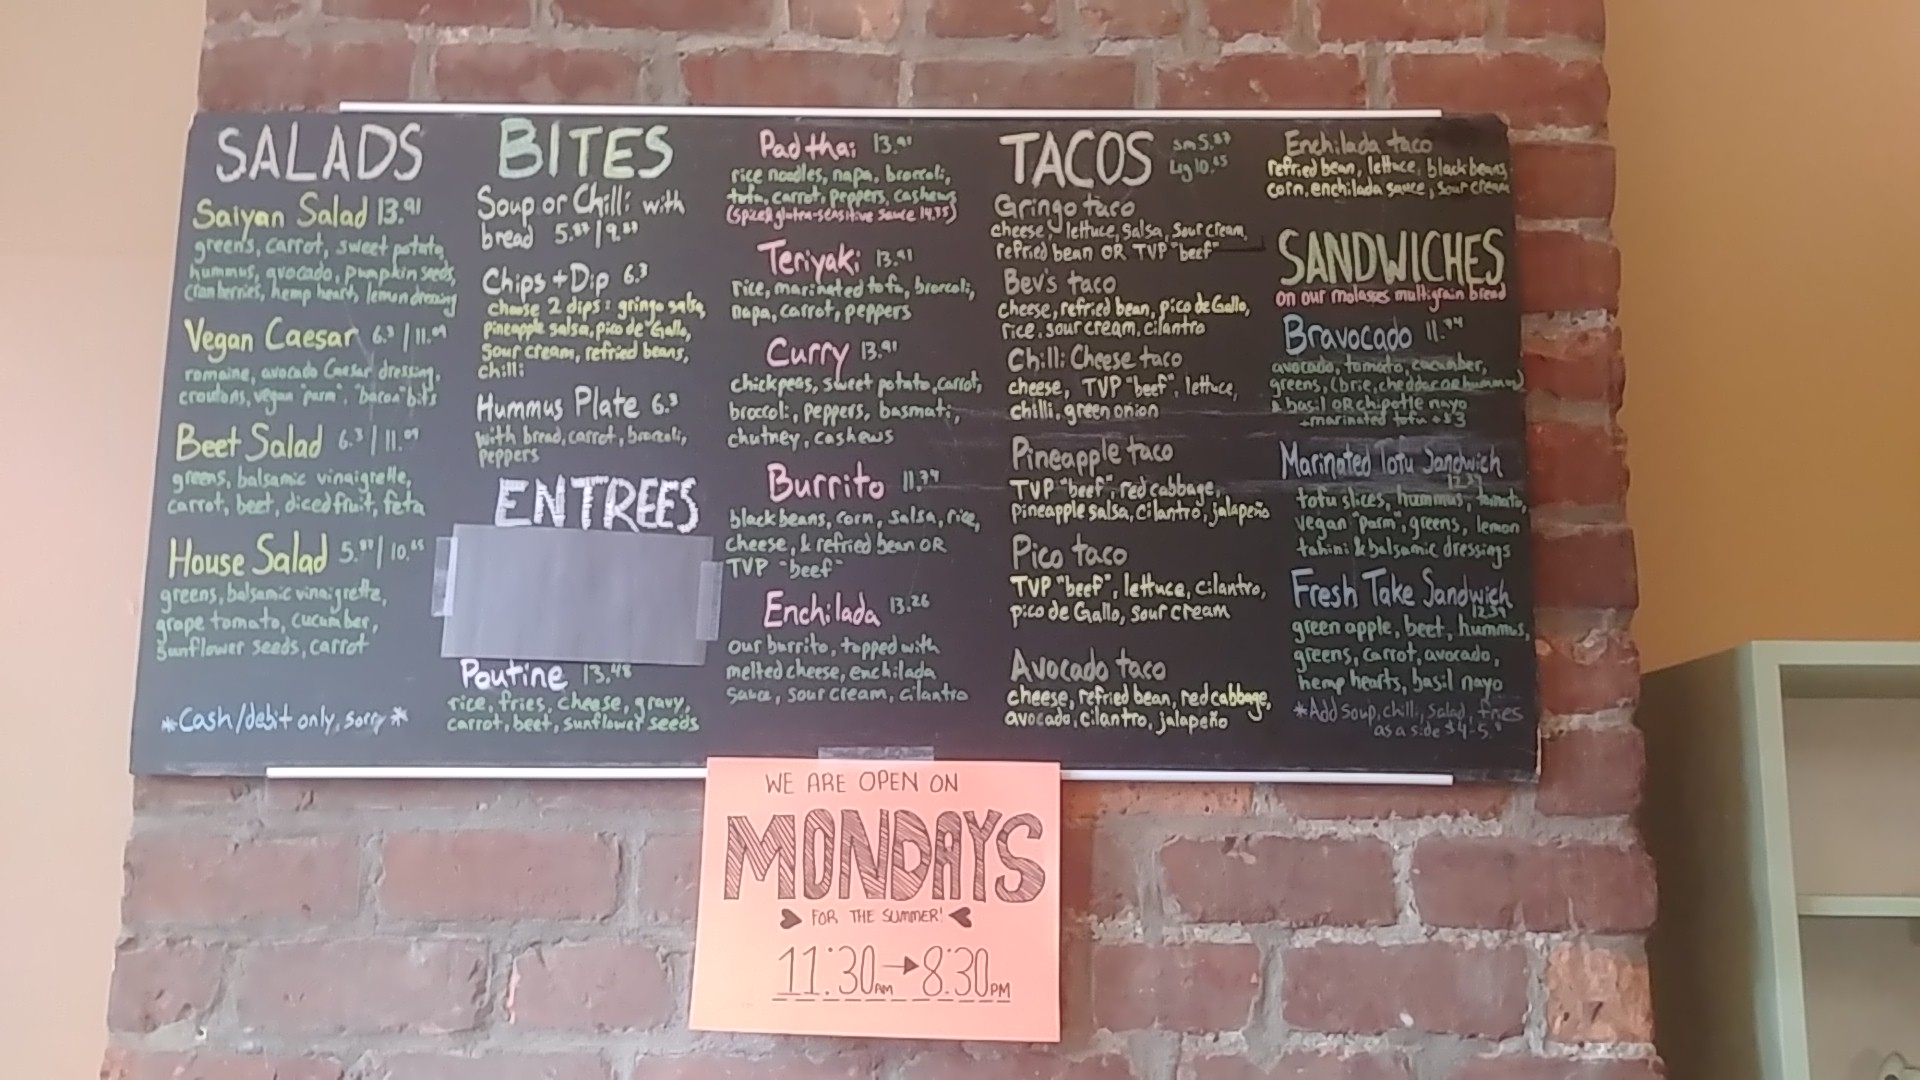 SALADS
Saiyan Salad 13.91
greens, carrot, sweet potato,
hummus, avocado, pumpkin seeds,
cranberries, hemp hearts, lemon dressing
Vegan Caesar 6.3 / 11.09
romaine, avocado Caesar dressing,
croutons, vegan "parm", "bacon" bits
Beet Salad 6.3 / 11.09
greens, balsamic vinaigrette,
carrot, beet, diced fruit, feta
House Salad 5.87 / 10.65
greens, balsamic vinaigrette,
grape tomato, cucumber,
sunflower seeds, carrot
*Cash/debit only, sorry*
BITES
Soup or Chilli: with
bread 5.87 / 9.87
Chips + Dip 6.3
choose 2 dips: gringo salsa,
pineapple salsa, pico de Gallo,
sour cream, refried beans,
chilli
Hummus Plate 6.3
with bread, carrot, broccoli,
peppers
ENTREES
Poutine 13.48
rice, fries, cheese, gravy,
carrot, beet, sunflower seeds
Pad thai 13.91
rice noodles, napa, broccoli,
tofu, carrot, peppers, cashews
(spiced gluten-sensitive sauce 14.35)
Teriyaki 13.91
rice, marinated tofu, broccoli,
napa, carrot, peppers
Curry 13.91
chickpeas, sweet potato, carrot,
broccoli, peppers, basmati,
chutney, cashews
Burrito 11.74
black beans, corn, salsa, rice,
cheese, & refried bean OR
TVP "beef"
Enchilada 13.26
our burrito, topped with
melted cheese, enchilada
sauce, sour cream, cilantro
TACOS
sm 5.87
Lg 10.65
Gringo taco
cheese, lettuce, salsa, sour cream,
refried bean OR TVP "beef"
Bev's taco
cheese, refried bean, pico de Gallo,
rice, sour cream, cilantro
Chilli Cheese taco
cheese, TVP "beef", lettuce,
chilli, green onion
Pineapple taco
TVP "beef", red cabbage,
pineapple salsa, cilantro, jalapeño
Pico taco
TVP "beef", lettuce, cilantro,
pico de Gallo, sour cream
Avocado taco
cheese, refried bean, red cabbage,
avocado, cilantro, jalapeño
Enchilada taco
refried bean, lettuce, black beans,
corn, enchilada sauce, sour cream
SANDWICHES
on our molasses multigrain bread
Bravocado 11.74
avocado, tomato, cucumber,
greens, (brie, cheddar or hummus)
& basil OR chipotle nayo
+marinated tofu +$3
Marinated Tofu Sandwich
12.39
tofu slices, hummus, tomato,
vegan "parm", greens, lemon
tahini & balsamic dressings
Fresh Take Sandwich
12.39
green apple, beet, hummus,
greens, carrot, avocado,
hemp hearts, basil nayo
*Add soup, chilli, salad, fries
as a side $4-5
WE ARE OPEN ON
MONDAYS
FOR THE SUMMER!
11:30AM → 8:30PM